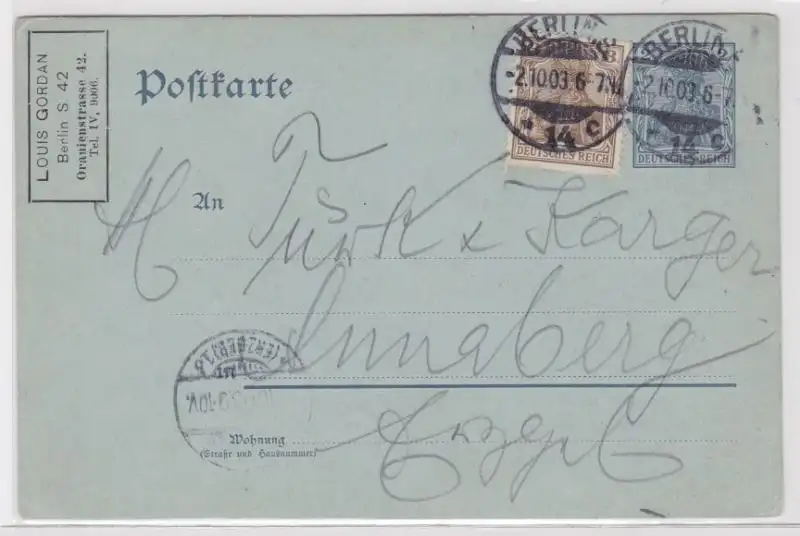 LOUIS GORDAN
Berlin S 42
Oranienstrasse 42.
Tel. IV, 9006.
Postkarte
BERLIN
2.10.03.6-7N.
* 14 c
DEUTSCHES REICH
BERLIN
2.10.03.6-7
* 14 c
DEUTSCHES REICH
An
H Türk & Karger
Annaberg
Erzgeb
Wohnung
(Straße und Hausnummer)